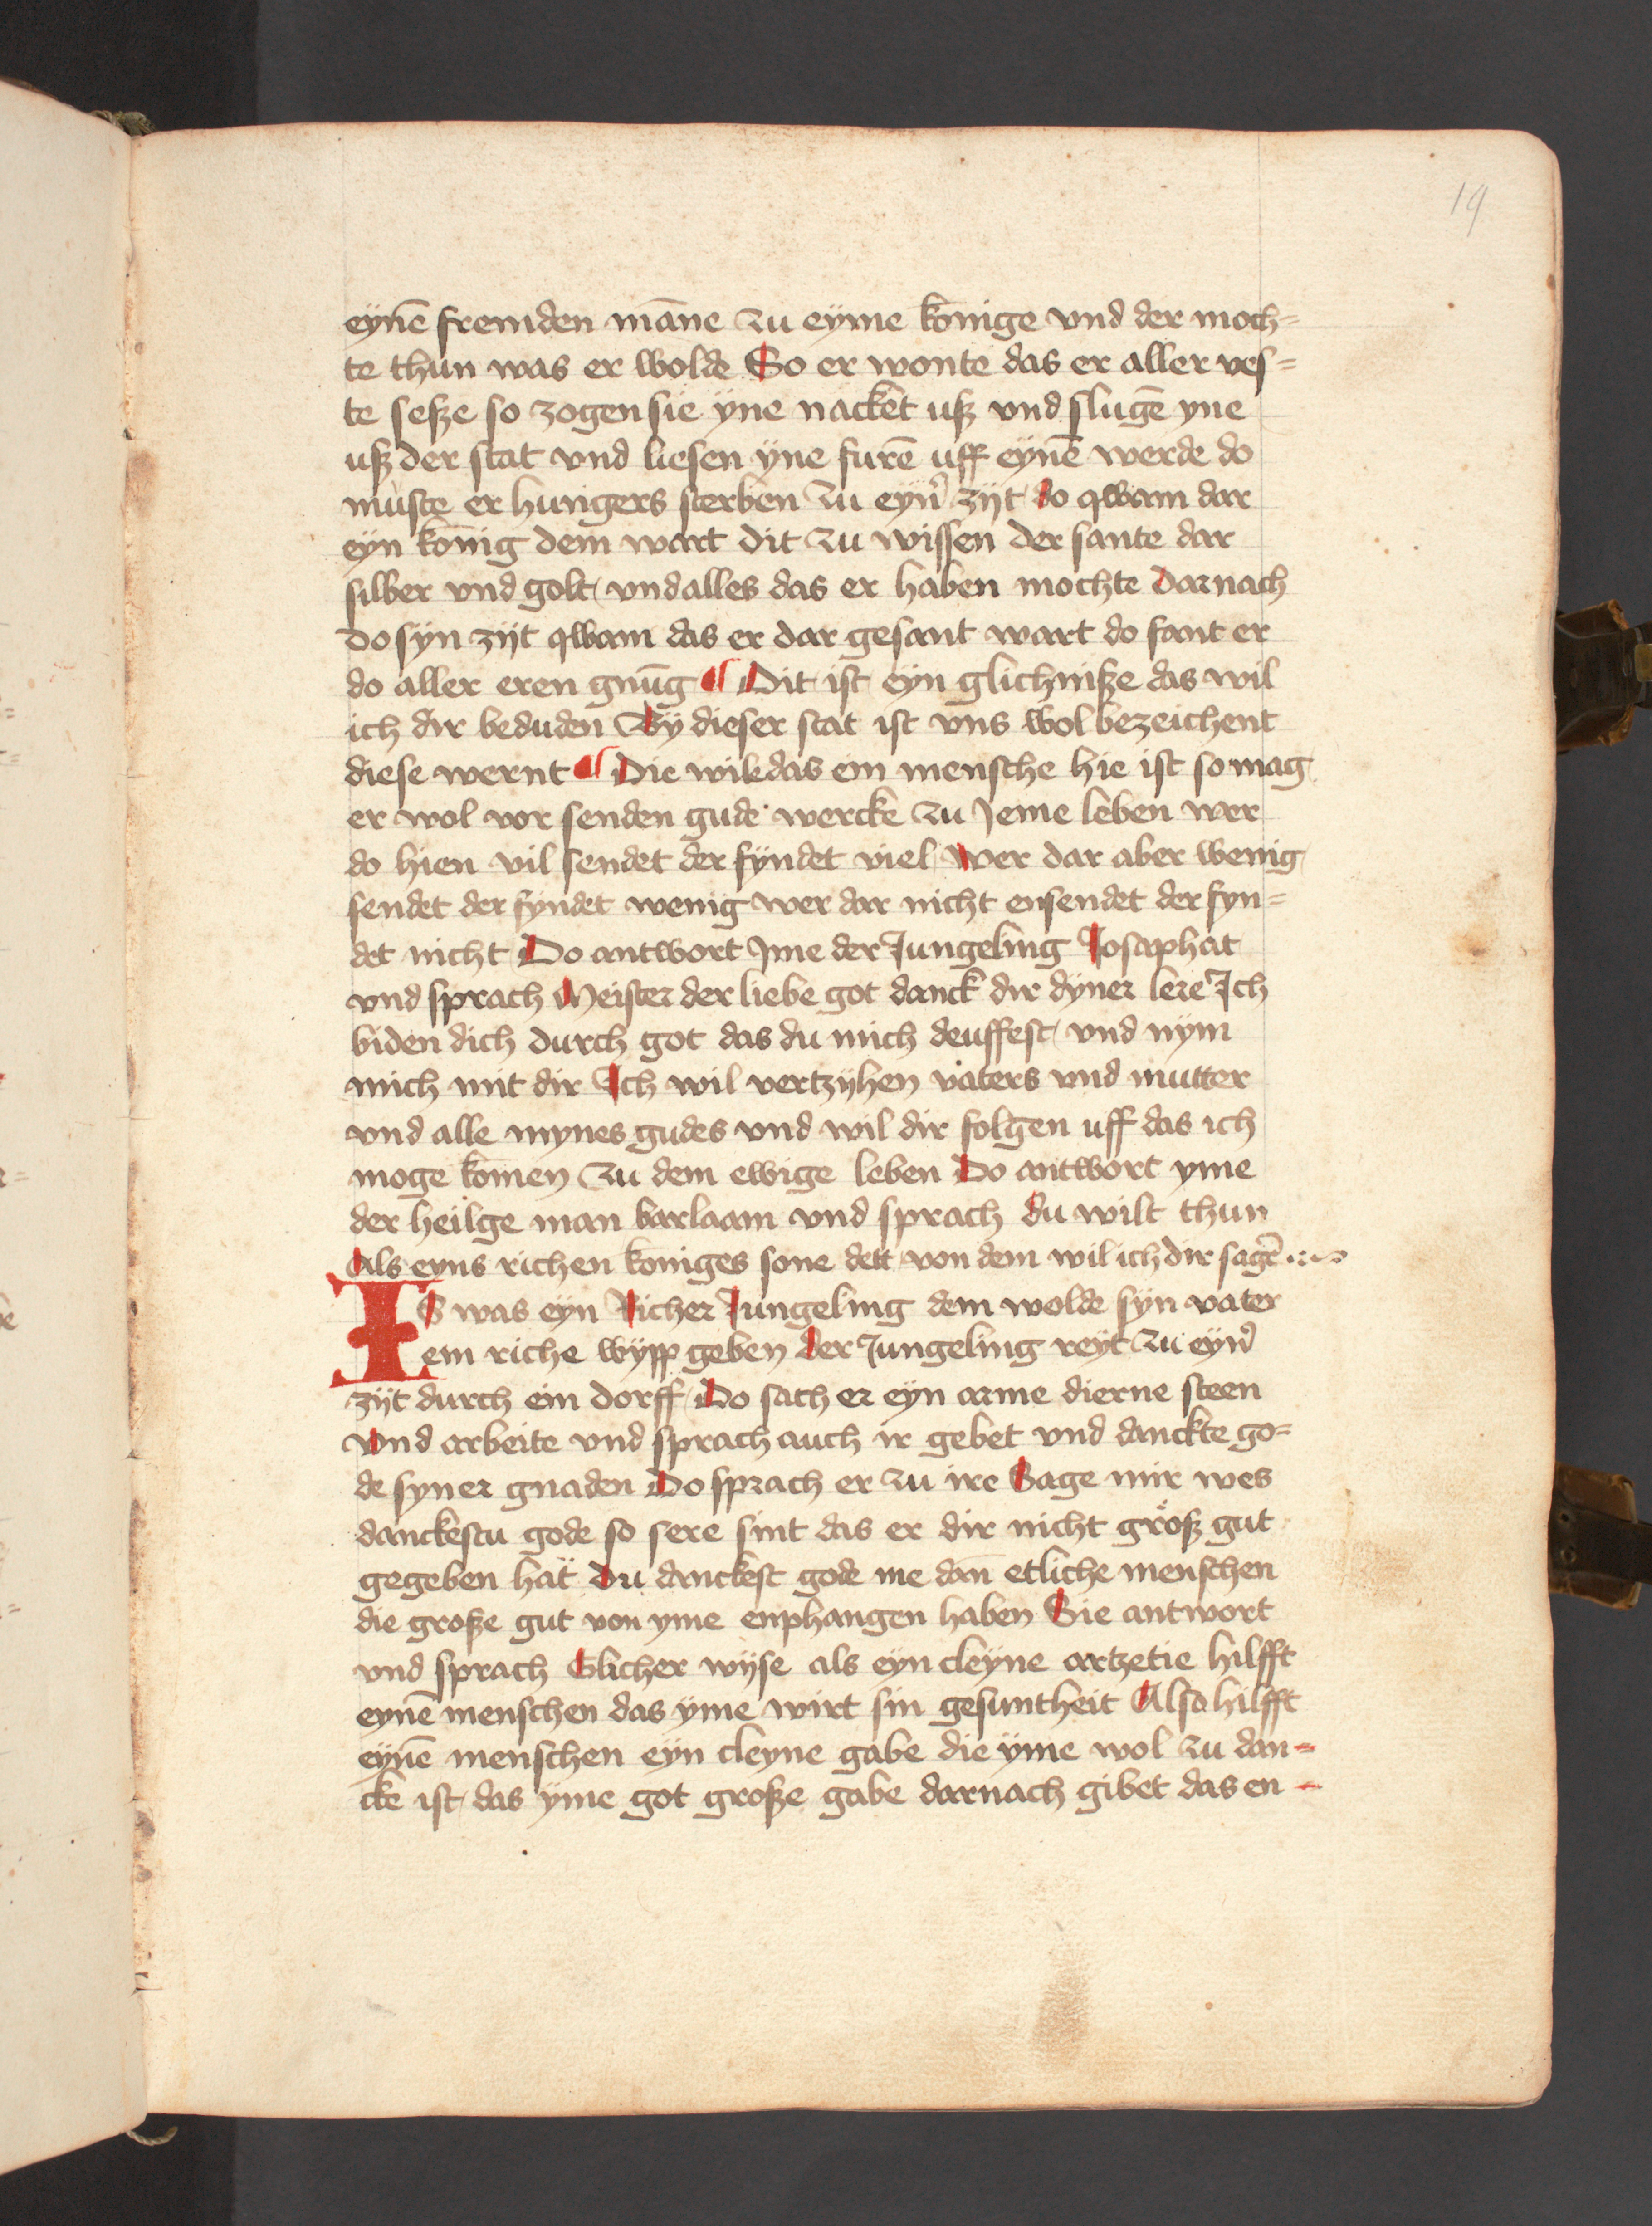 19
eynē fremden māne zu eyme konige vnd der moch=
te thun was er wolde So er wonte das er aller ves=
te sesze so zogen sie yne nacket usz vnd slugē yne
usz der stat vnd liesen ÿne furē uff eynē werde do
muste er hungers sterben zu eyn̉ zijt do qwam dar
eyn konig dem wart dit zu wissen der sante dar
silber vnd golt vnd alles das er haben mochte Darnach
do syn zijt qwam das er dar gesant wart do fant er
do aller eren gnūg ¶ Dit ist eyn glichnisze das wil
ich dir beduden Bÿ dieser stat ist vns wol bezeichent
diese wernt ¶ Die wile das ein mensche hie ist so mag
er wol vor senden gude wercke zu Jeme leben wer
do hien vil sendet der fyndet viel Wer dar aber wenig
sendet der fyndet wenig wer dar nicht ensendet der fyn=
det nicht Do antwort Jme der Jungeling Josaphat
vnd sprach Meister der liebe got danck dir dyner lere Ich
biden dich durch got das du mich deuffest vnd nym
mich mit dir Ich wil vertzyhen vaters vnd mutter
vnd alle mynes gudes vnd wil dir folgen uff das ich
moge komen zu dem ewige leben Do antwort yme
der heilge man barlaam vnd sprach du wilt thun
Als eyns richen koniges sone dett von dem wil ich dir sagē
IS was eyn Richer Jungeling dem wolde syn vater
ein riche wypp geben der Jungeling reyt zu eyn̉
zijt durch ein dorff Do sach er eyn arme dierne steen
vnd arbeite vnd sprach auch ir gebet vnd danckte go=
de syner gnaden Do sprach er zu ire Sage mir wes
danckestu gode so sere sint das er dir nicht grosz gut
gegeben hat Du danckest gode me dan̄ etliche menschen
die grosze gut von yme enphangen haben Sie antwort
vnd sprach Glicher wyse als eyn cleyne artzetie hilfft
eynē menschen das yme wirt sin gesuntheit Also hilfft
eynē menschen eyn cleyne gabe die yme wol zu dan=
cke ist das yme got grosze gabe darnach gibet das en-